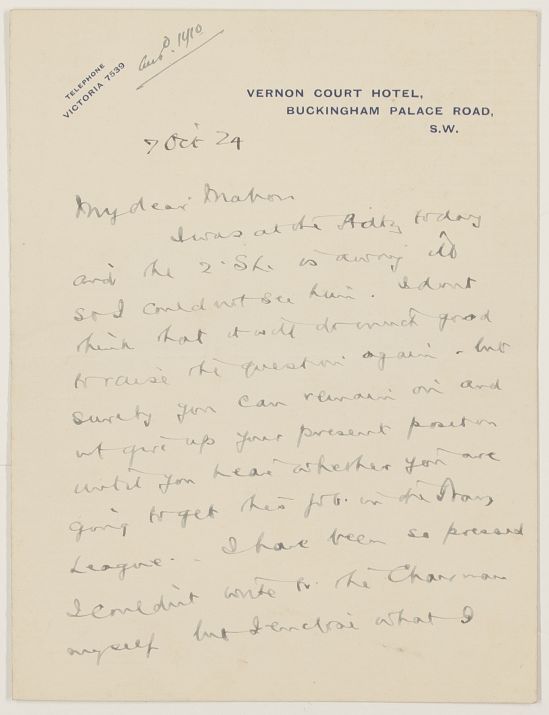 TELEPHONE
VICTORIA 7539
ansd. 14/10
VERNON COURT HOTEL,
BUCKINGHAM PALACE ROAD,
S.W.
7 Oct 24
My dear Mahon
I was at the today
and the 2 is away
so I could not see him. I dont
think that it will do much good
to raise the question again - but
surely you can remain on and
not give up your present position
until you hear whether you are
going to get this job in the Navy
League. I have been so pressed
I couldn't write to the Chairman
myself but I enclose what I